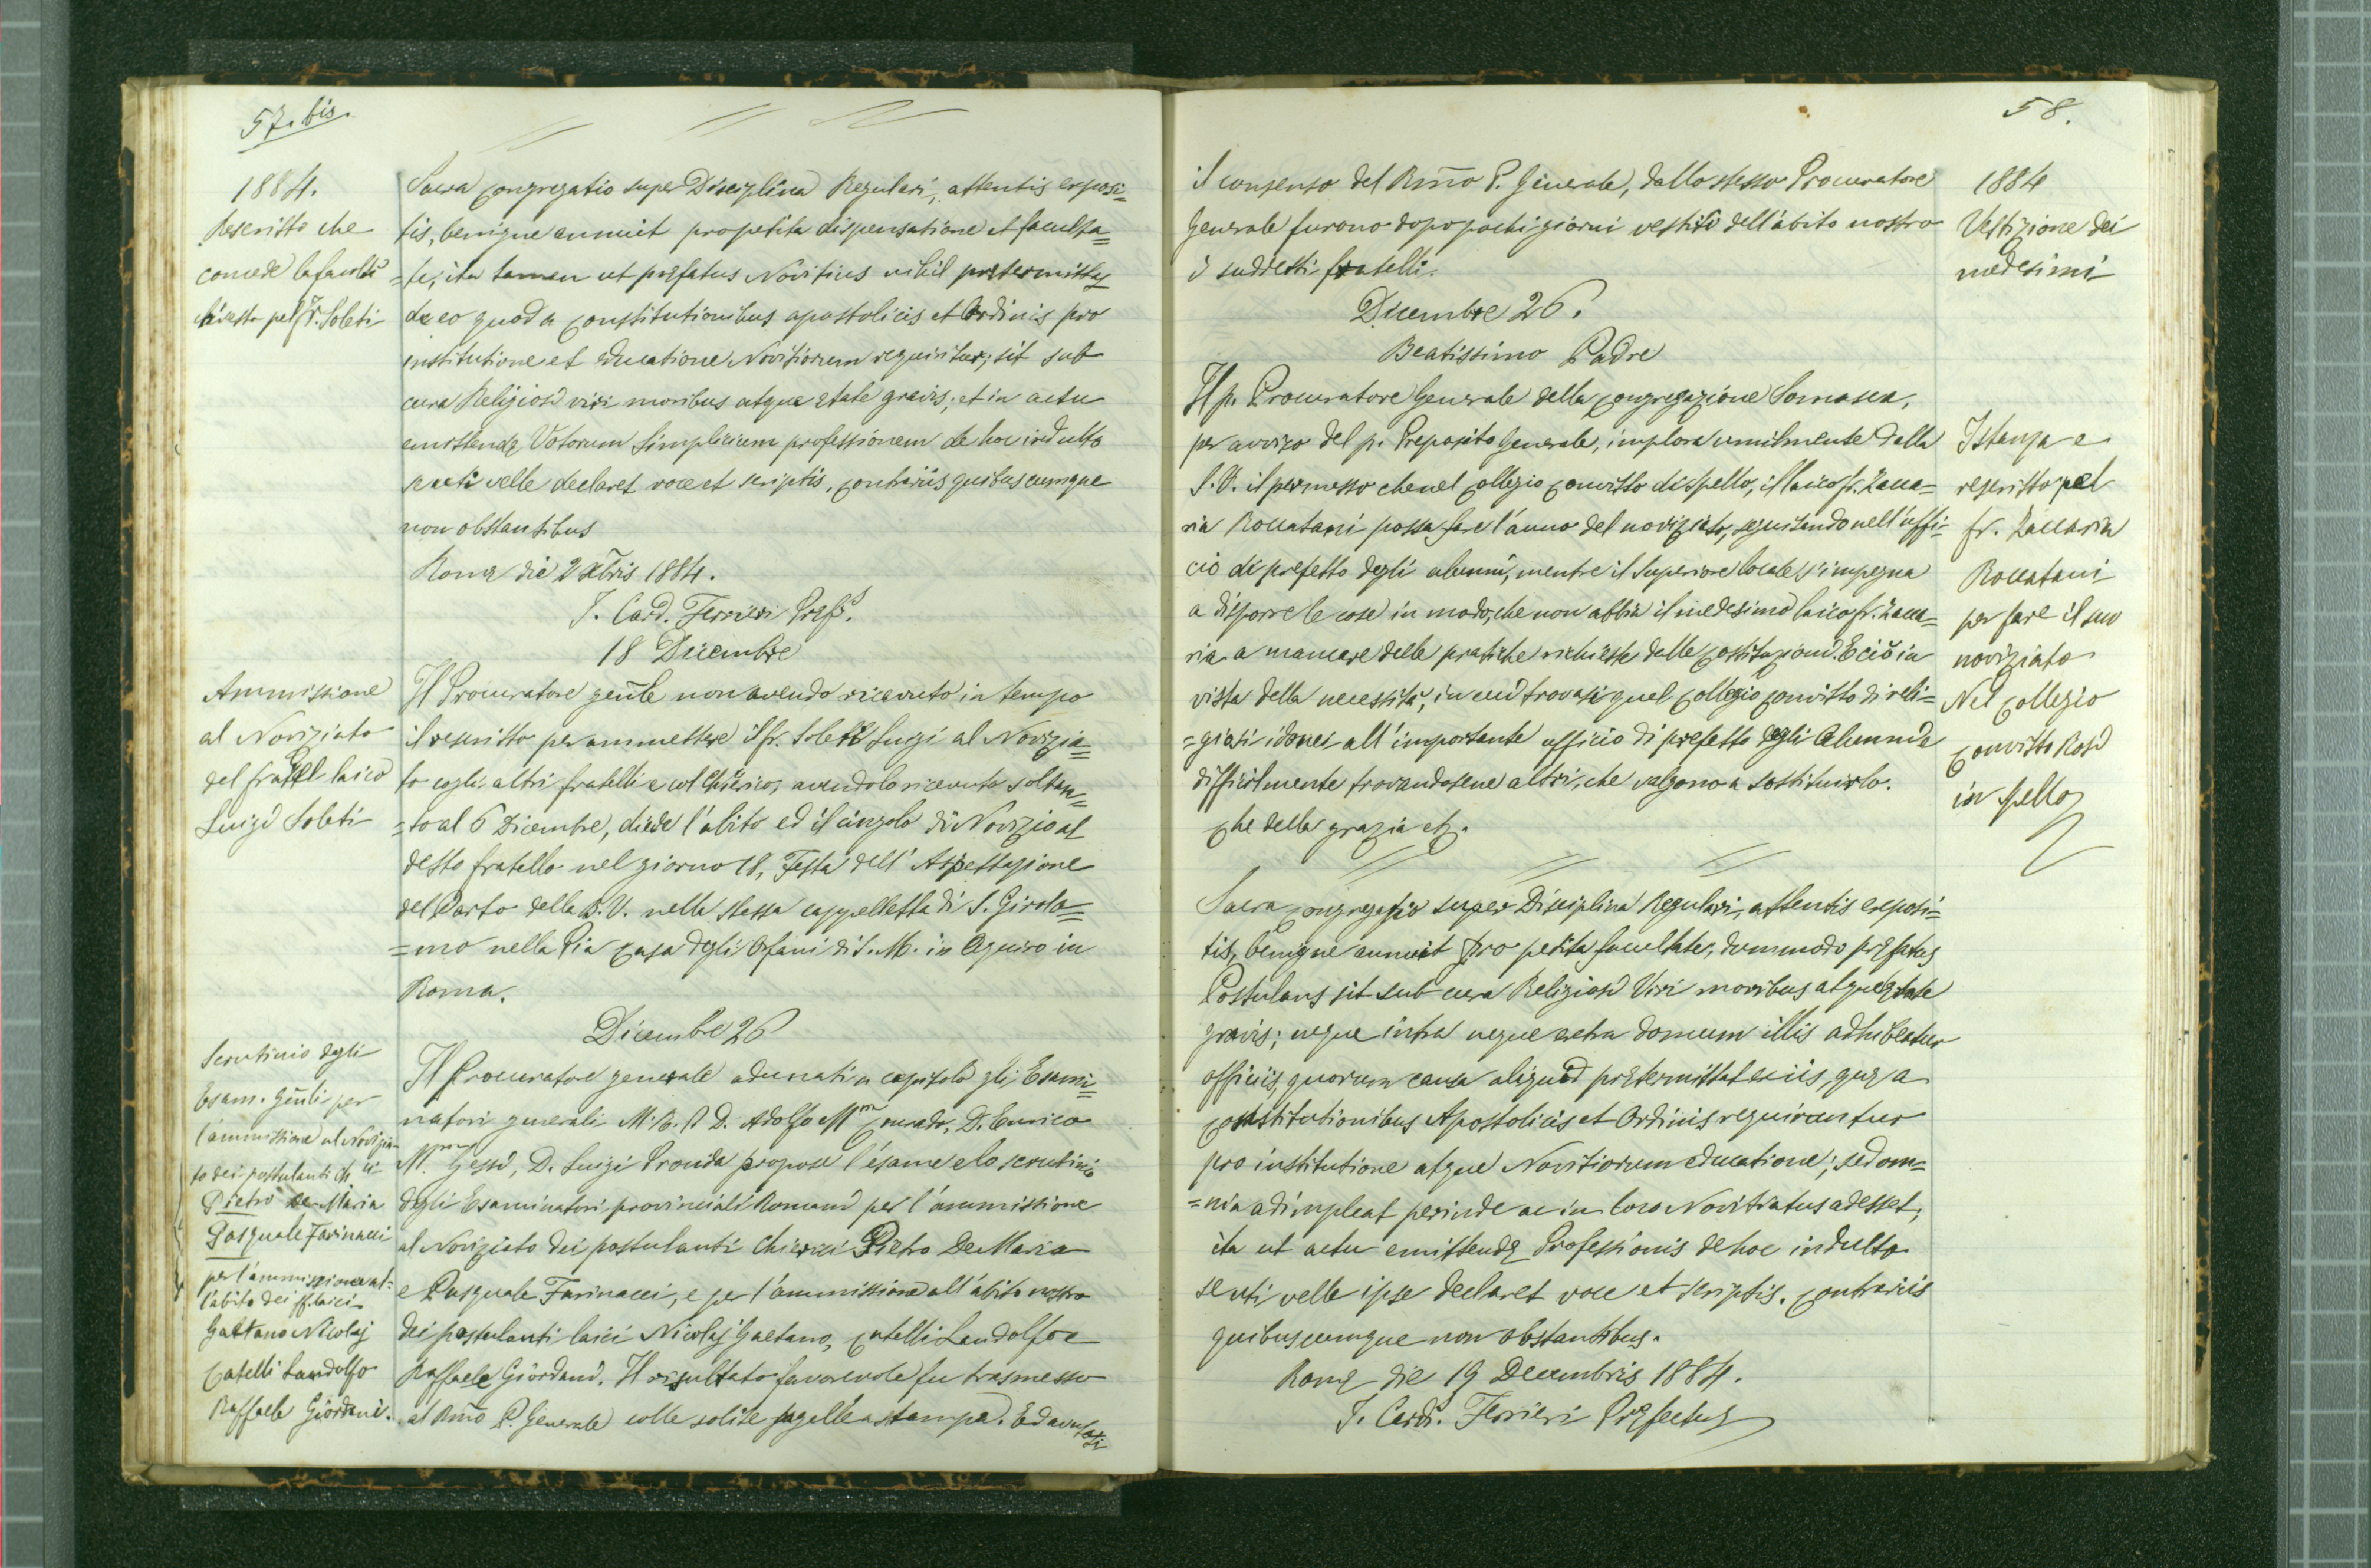 57. bis.
1884.
Rescritto che
concede la facoltà
chiesta pel Fr. Soleti
Sacra Congregatio super Disciplina Regulari, attentis exposi=
tis, benigne annuit pro petita dispensatione et faculta=
=te, ita tamen ut præfatus Novitius nihil prætermittat
de eo quod a Constitutionibus apostolicis et Ordinis pro
institutione et educatione Novitiorum requiritur; sit sub
cura Religiosi viri moribus atque ætate gravis; et in actu
emittendæ Votorum Simplicium professionem de hoc indulto
se uti velle declaret voce et scriptis, contrariis quibuscumque
non obstantibus
Romæ die 2 Xbris 1884.
I. Card. Ferrieri Præfs.
18 Dicembre
Ammissione
al Noviziato
del fratel laico
Luigi Soleti
Il Procuratore genle non avendo ricevuto in tempo
il rescritto per ammettere il fr. Soleti Luigi al Novizia=
to cogli altri fratelli e col Chierico, avendolo ricevuto soltan=
=to al 6 Dicembre, diede l'abito ed il cingolo di Novizio al
detto fratello nel giorno 18, Festa dell'Aspettazione
del Parto della B. V. nella stessa cappelletta di S. Girola=
=mo nella Pia Casa degli Orfani di S. M. in Aquiro in
Roma.
Dicembre 26
Scrutinio degli
Esam. Gñli per
l'ammissione al Novizia
to dei postulanti Ch ci
Pietro De Maria
Pasquale Farinacci
per l'ammissione al=
l'abito dei ff. laici
Gaetano Nicolaj
Catelli Landolfo
Raffaele Giordani.
Il Procuratore generale adunati a capitolo gli Esami=
natori generali M. R. P. D. Adolfo Mm Conrado, D. Enrico
M. Gessi, D. Luigi Procida propose l'esame e lo scrutinio
degli Esaminatori provinciali Romani per l'ammissione
al Noviziato dei postulanti Chierici Pietro De Maria
e Pasquale Farinacci, e per l'ammissione all'abito nostro
dei postulanti laici Nicolaj Gaetano, Catelli Landolfo e
Raffaele Giordani. Il risultato favorevole fu trasmesso
al Rm̃o P. Generale colle solite pagelle a stampa. Ed avutosi
58.
il consenso del Rm̃o P. Generale, dallo stesso Procuratore
Generale furono dopo pochi giorni vestiti dell'abito nostro
i suddetti fratelli.
1884
Vestizione dei
medesimi
Dicembre 26.
Beatissimo Padre
Il p. Procuratore Generale della Congregazione Somasca,
per avviso del p. Preposito Generale, implora umilmente dalla
S. V. il permesso che nel Collegio Convitto di Spello, il laico fr. Zacca=
ria Roccatani possa fare l'anno del noviziato, seguitando nell'uffi=
cio di prefetto degli alunni, mentre il Superiore locale s'impegna
a disporre le cose in modo, che non abbia il medesimo laico fr. Zacca=
ria a mancare delle pratiche richieste dalle Costituzioni. E ciò in
vista della necessità, in cui trovasi quel Collegio Convitto di reli=
=giosi idonei all'importante ufficio di prefetto degli Alunni e
difficilmente trovandosene altri, che valgono a sostituirlo.
Che della grazia etc.
Istanza e
rescritto pel
fr. Zaccaria
Roccatani
per fare il suo
noviziato
Nel Collegio
Convitto Rosi
in Spello
Sacra Congregatio super Disciplina Regulari, attentis exposi=
tis, benigne annuit pro petita facultate, dummodo præfatus
Postulans sit sub cura Religiosi Viri moribus atque ætate
gravis; neque intra neque extra domum illis adhibeatur
officiis, quorum causa aliquid prætermittat ex iis, quæ a
Constitutionibus Apostolicis et Ordinis requirantur
pro institutione atque Novitiorum educatione; sed om=
=nia adimpleat perinde ac in loco Novitiatus adesset,
ita ut actu emittendæ Professionis de hoc indulto
se uti velle ipse declaret voce et scriptis. Contrariis
quibuscumque non obstantibus.
Romæ die 19 Decembris 1884.
I. Card. Ferrieri Præfectus